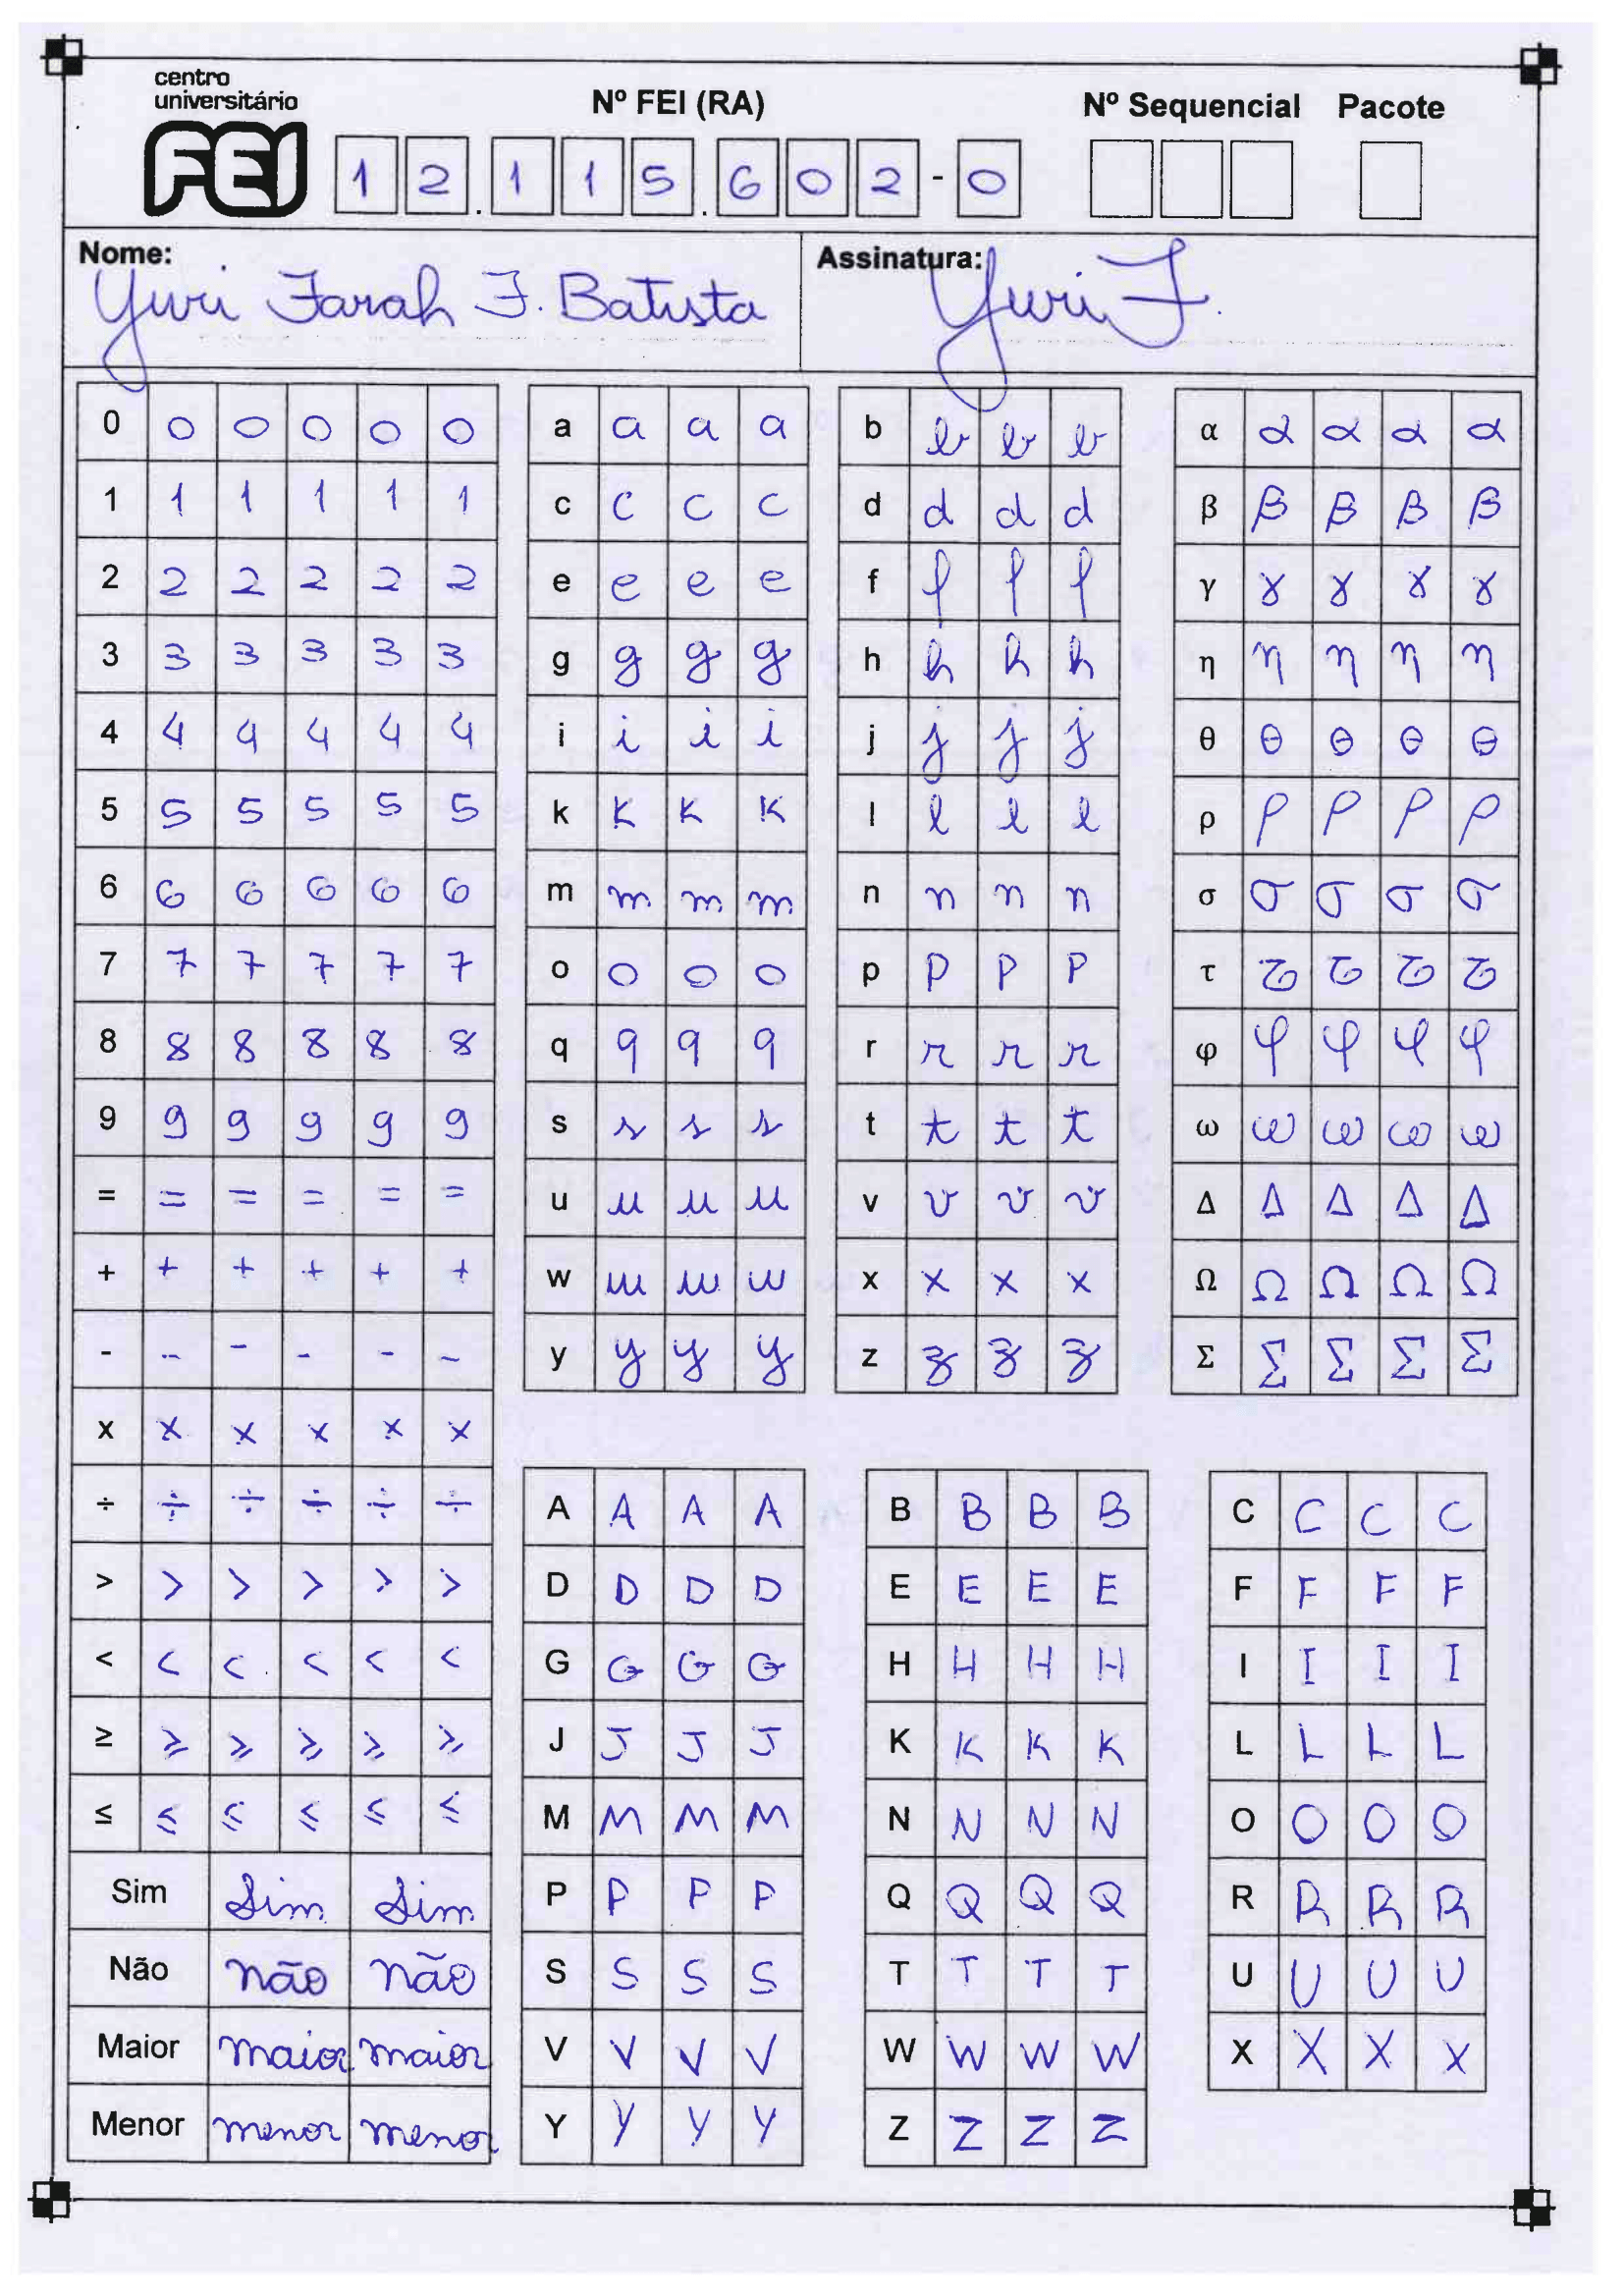 centro
universitário
FEI
Nº FEI (RA)
Nº Sequencial Pacote
1 2 . 1 1 5 . 6 0 2 - 0
Nome: Yuri Farah F. Batista
Assinatura: Yuri F.
0 0 0 0 0 0
1 1 1 1 1 1
2 2 2 2 2 2
3 3 3 3 3 3
4 4 4 4 4 4
5 5 5 5 5 5
6 6 6 6 6 6
7 7 7 7 7 7
8 8 8 8 8 8
9 9 9 9 9 9
= = = = = =
+ + + + + +
- - - - - -
x x x x x x
÷ ÷ ÷ ÷ ÷ ÷
> > > > > >
< < < < < <
≥ ≥ ≥ ≥ ≥ ≥
≤ ≤ ≤ ≤ ≤ ≤
Sim Sim Sim
Não não não
Maior maior maior
Menor menor menor
a a a a
c c c c
e e e e
g g g g
i i i i
k k k k
m m m m
o o o o
q q q q
s s s s
u u u u
w w w w
y y y y
b b b b
d d d d
f f f f
h h h h
j j j j
l l l l
n n n n
p p p p
r r r r
t t t t
v v v v
x x x x
z z z z
α α α α α
β β β β β
γ γ γ γ γ
η η η η η
θ θ θ θ θ
ρ ρ ρ ρ ρ
σ σ σ σ σ
τ τ τ τ τ
φ φ φ φ φ
ω ω ω ω ω
Δ Δ Δ Δ Δ
Ω Ω Ω Ω Ω
Σ Σ Σ Σ Σ
A A A A
D D D D
G G G G
J J J J
M M M M
P P P P
S S S S
V V V V
Y Y Y Y
B B B B
E E E E
H H H H
K K K K
N N N N
Q Q Q Q
T T T T
W W W W
Z Z Z Z
C C C C
F F F F
I I I I
L L L L
O O O O
R R R R
U U U U
X X X X